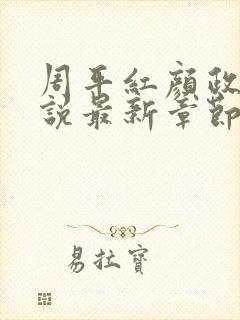 周平紅顏政
說最新章節
易拉寶